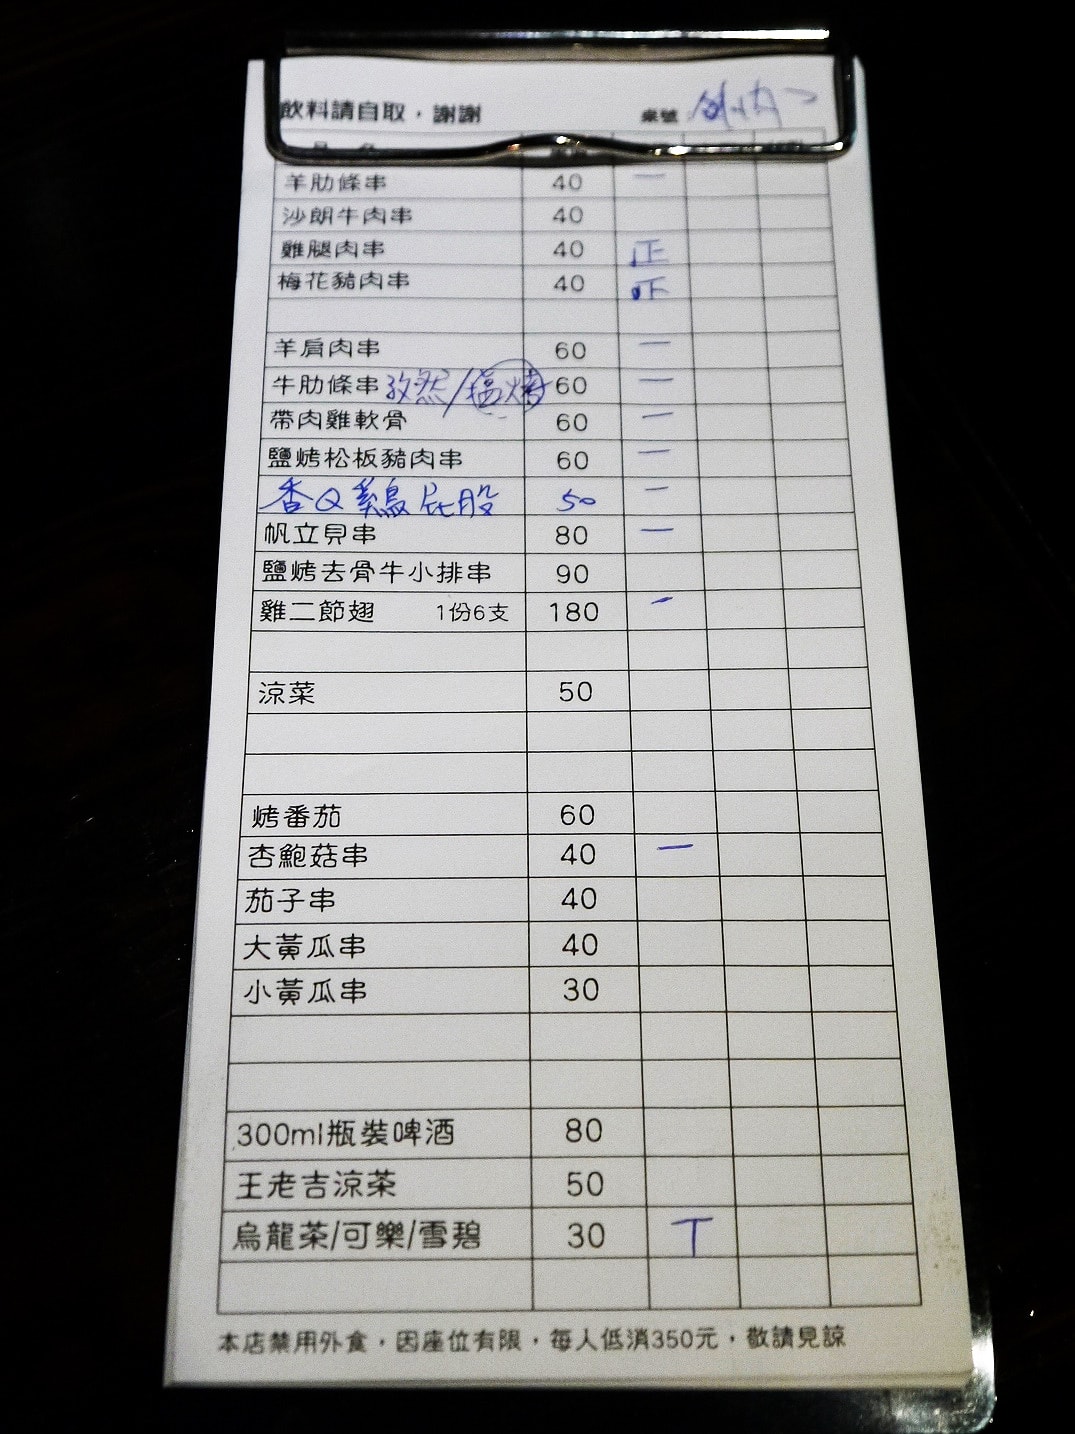 飲料請自取，謝謝 桌號：
羊肋條串 40 一
沙朗牛肉串 40
雞腿肉串 40 正
梅花豬肉串 40 正
羊肩肉串 60 一
牛肋條串 孜然/塩烤 60 一
帶肉雞軟骨 60 一
鹽烤松板豬肉串 60 一
香Q雞屁股 50 一
帆立貝串 80 一
鹽烤去骨牛小排串 90
雞二節翅 1份6支 180 一
涼菜 50
烤番茄 60
杏鮑菇串 40 一
茄子串 40
大黃瓜串 40
小黃瓜串 30
300ml瓶裝啤酒 80
王老吉涼茶 50
烏龍茶/可樂/雪碧 30 丅
本店禁用外食，因座位有限，每人低消350元，敬請見諒